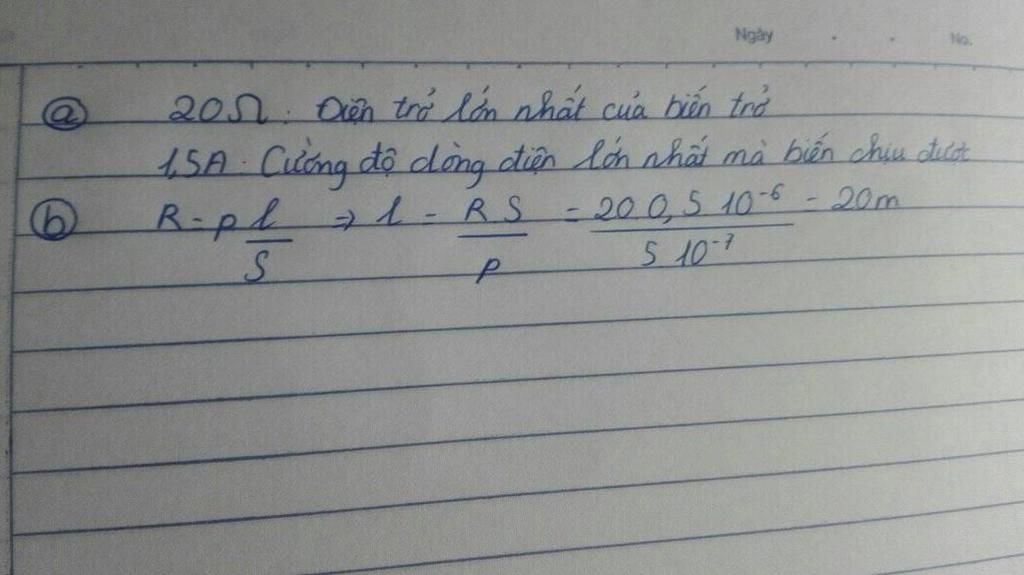 Ngày . . No.
ⓐ 20Ω: Điện trở lớn nhất của biến trở
1,5A: Cường độ dòng điện lớn nhất mà biến chịu được
ⓑ R = p l/S => l = R S / p = 20 0,5 10⁻⁶ / 5 10⁻⁷ = 20m